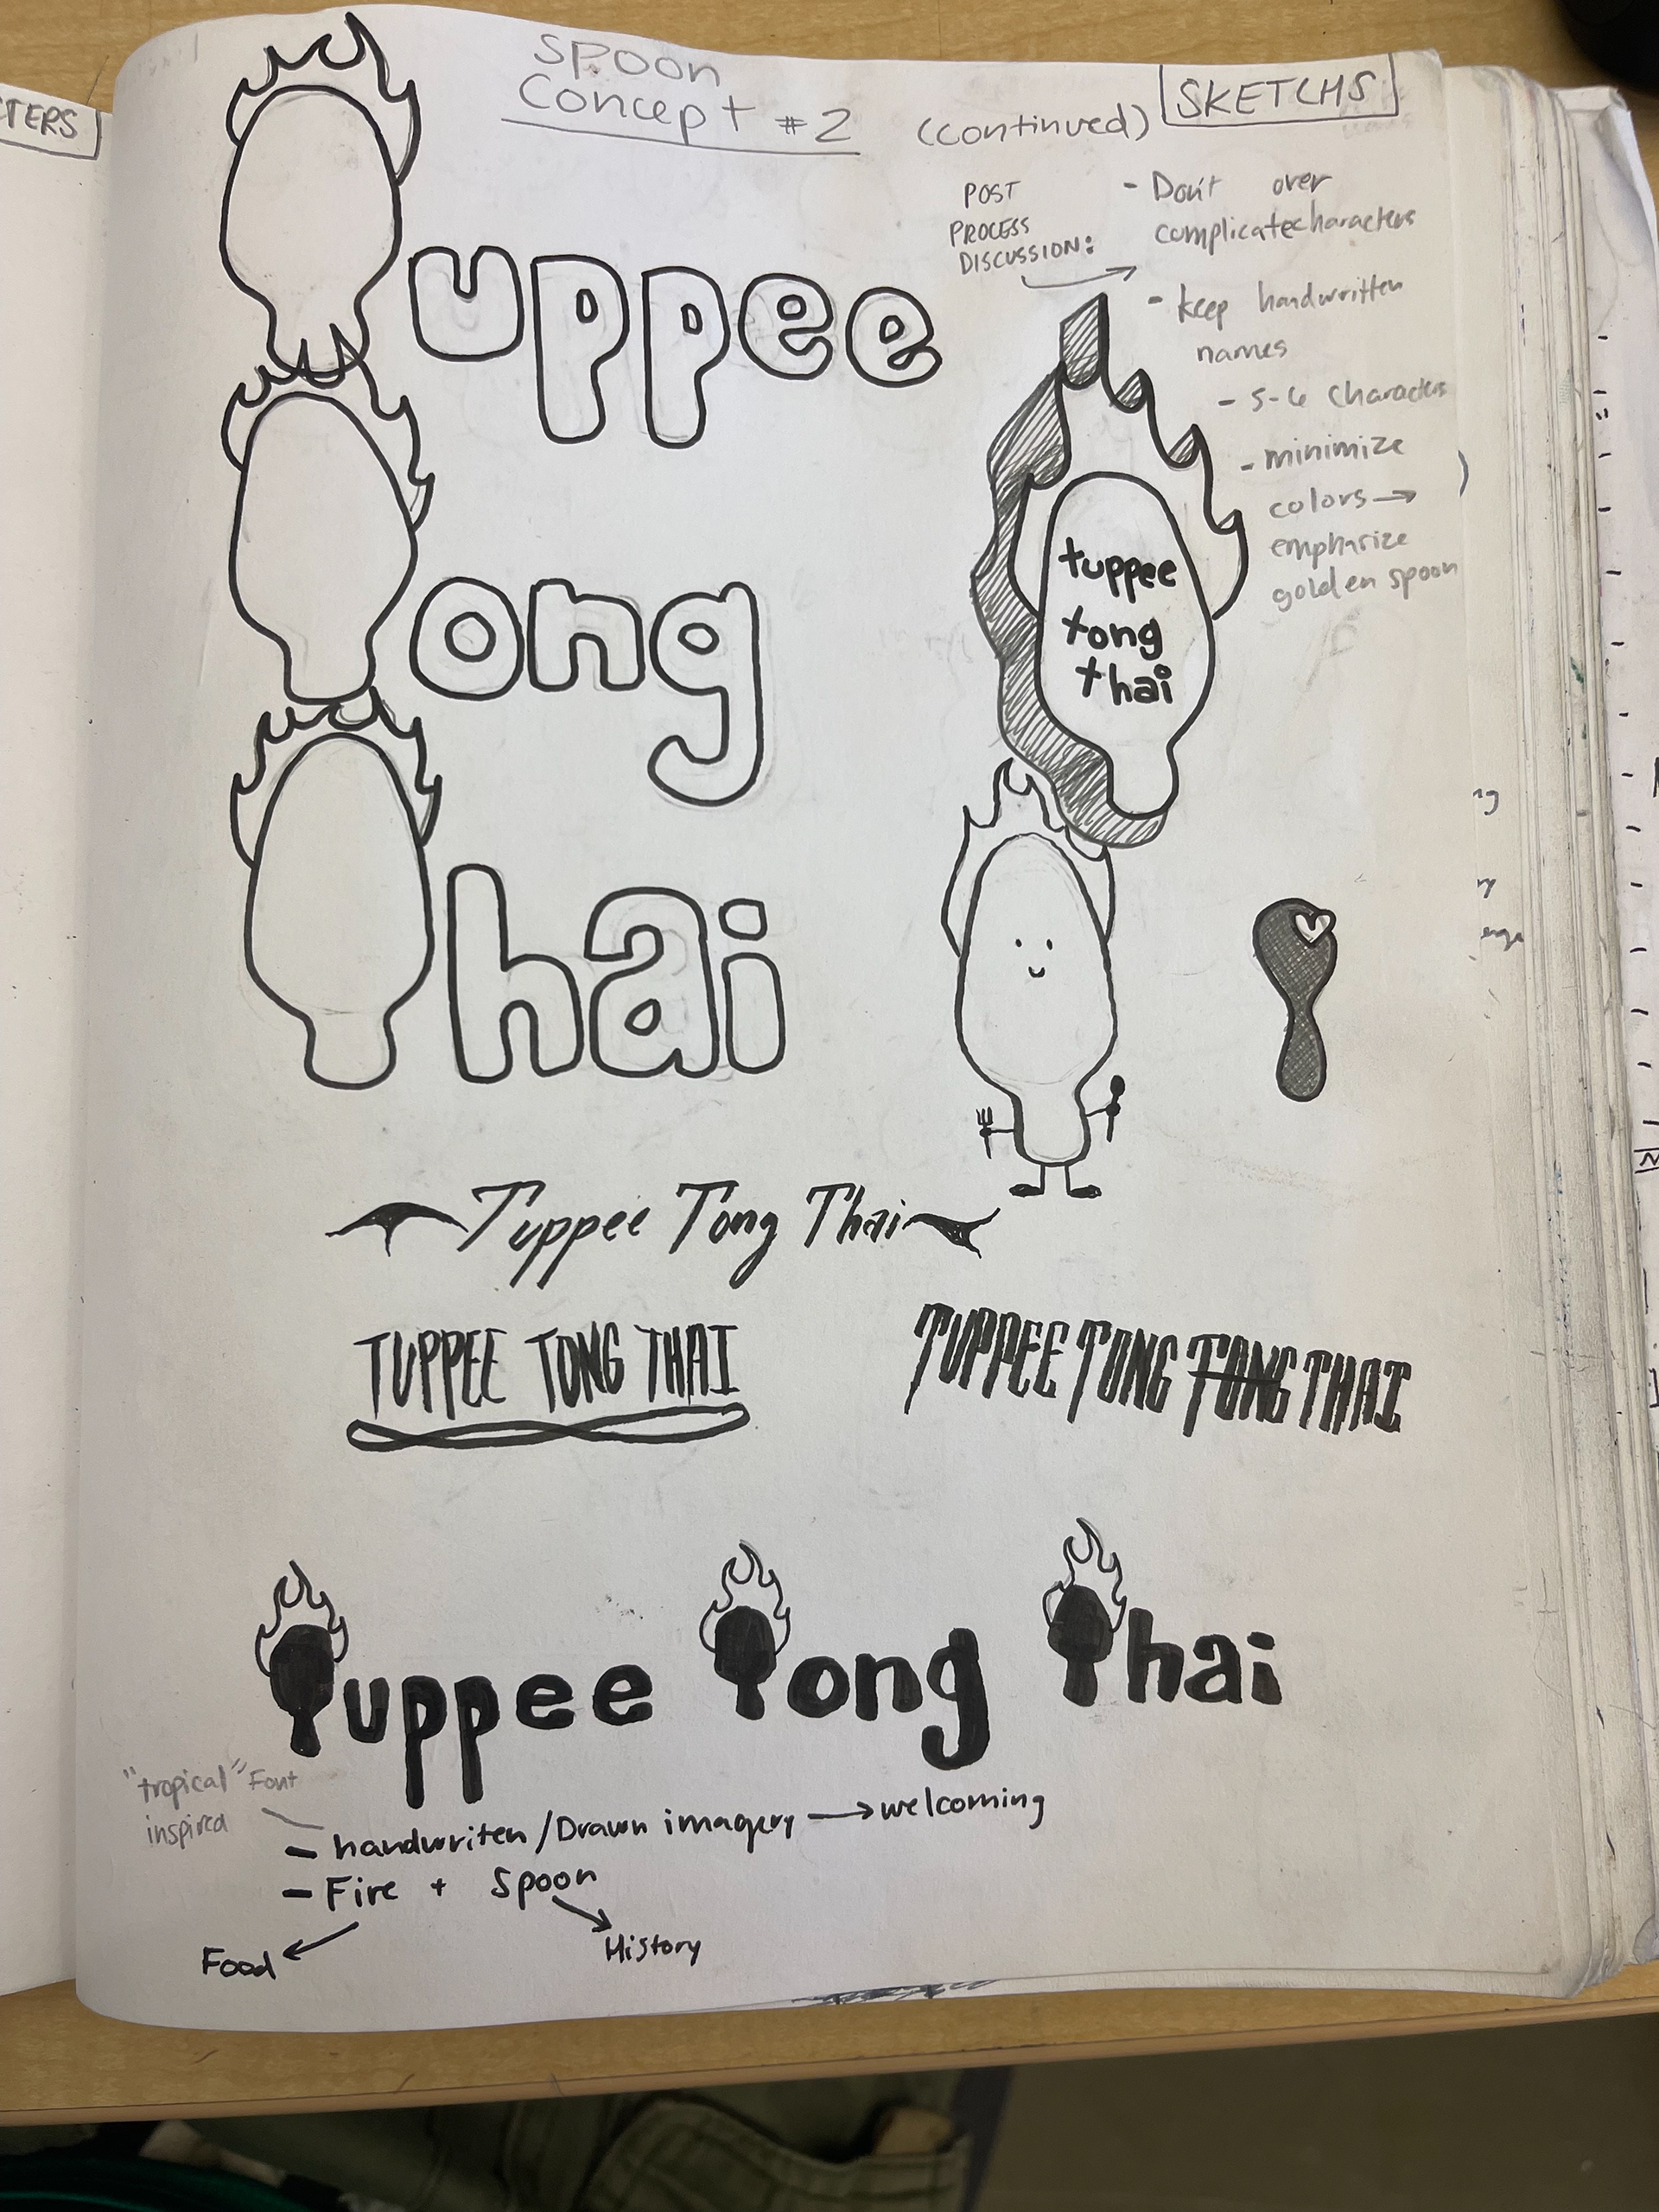 TERS
SPOON
Concept #2 (continued)
SKETCHS
POST
PROCESS
DISCUSSION:
- Don't over
complicatecharacters
- keep handwritten
names
- 5-6 characters
- minimize
colors →
emphasize
golden spoon
uppee
ong
hai
tuppee
tong
thai
Tuppee Tong Thai
TUPPEE TONG THAI
TUPPEE TONG TONG THAI
uppee ong hai
"tropical" Font
inspired
- handwriten / Drawn imagery → welcoming
- Fire + Spoon
Food
History